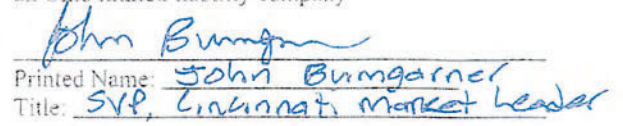 an Ohio limited liability company
John Bumgarner
Printed Name: John Bumgarner
Title: SVP, Cincinnati Market Leader